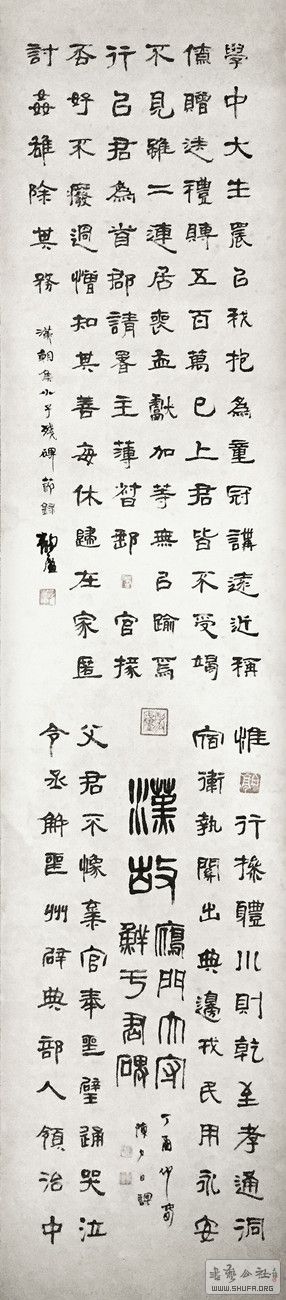 學中大生晨以我抱為童冠講遠近稱
僚贈送禮賻五百萬已上君皆不受竭
不見雖二連居喪孟獻加等無以踰焉
行以君為首郡請署主薄督郵官掾
否好不癈過憎知其善每休歸在家匿
討姦雄除其務
漢朝小子殘碑節錄
惟行操體川則乾至孝通洞
宿衛執閣出典邊戎民用永安
漢故
鴈門太守
鮮于君碑
丁酉仲商
陳夕日課
父君不像棄官奉喪璧踊哭泣
令丞解喪州辟典部入領治中
書藝公社
WWW.SHUFA.ORG